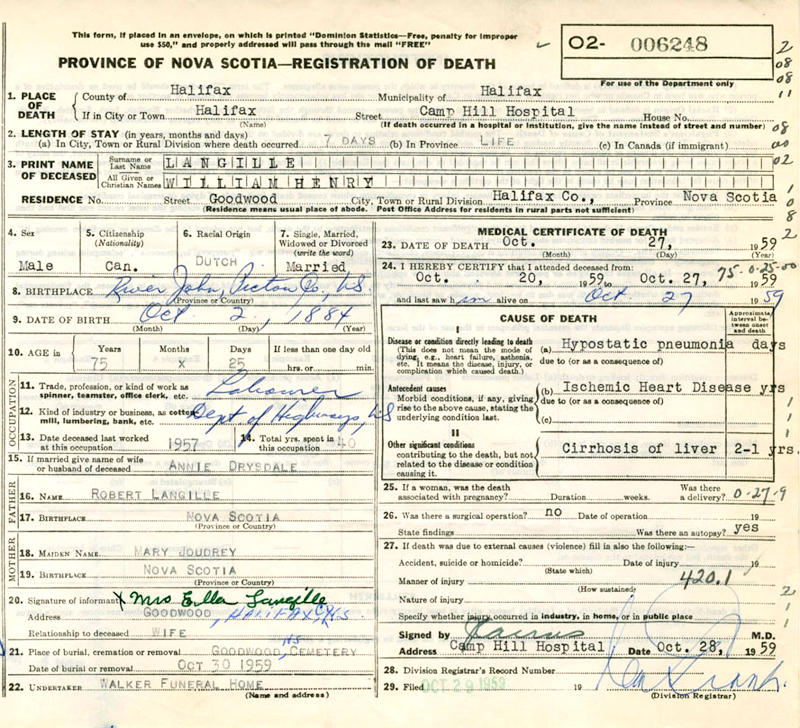 This form, if placed in an envelope, on which is printed "Dominion Statistics—Free, penalty for improper
use $50," and properly addressed will pass through the mail "FREE"
O2- 006248
PROVINCE OF NOVA SCOTIA—REGISTRATION OF DEATH
For use of the Department only
1. PLACE OF DEATH { County of Halifax Municipality of Halifax
If in City or Town Halifax (Name) Street Camp Hill Hospital House No.
(If death occurred in a hospital or institution, give the name instead of street and number)
2. LENGTH OF STAY (in years, months and days)
(a) In City, Town or Rural Division where death occurred 7 DAYS (b) In Province LIFE (c) In Canada (if immigrant)
3. PRINT NAME OF DECEASED { Surname or Last Name LANGILLE
All Given or Christian Names WILLIAM HENRY
RESIDENCE No. Street Goodwood City, Town or Rural Division Halifax Co., Province Nova Scotia
(Residence means usual place of abode. Post Office Address for residents in rural parts not sufficient)
4. Sex Male
5. Citizenship (Nationality) Can.
6. Racial Origin DUTCH
7. Single, Married, Widowed or Divorced (write the word) Married
8. BIRTHPLACE River John, Pictou Co, N.S.
(Province or Country)
9. DATE OF BIRTH Oct 2, 1884
(Month) (Day) (Year)
10. AGE in Years 75 Months x Days 25 If less than one day old hrs. or min.
OCCUPATION
11. Trade, profession, or kind of work as spinner, teamster, office clerk, etc. Labourer
12. Kind of industry or business, as cotton mill, lumbering, bank, etc. Dept of Highways, NS
13. Date deceased last worked at this occupation 1957
14. Total yrs. spent in this occupation 40
15. If married give name of wife or husband of deceased ANNIE DRYSDALE
FATHER
16. NAME ROBERT LANGILLE
17. BIRTHPLACE NOVA SCOTIA
(Province or Country)
MOTHER
18. MAIDEN NAME MARY JOUDREY
19. BIRTHPLACE NOVA SCOTIA
(Province or Country)
20. Signature of informant X Mrs Ella Langille
Address GOODWOOD, HALIFAX Co, N.S.
Relationship to deceased WIFE
21. Place of burial, cremation or removal GOODWOOD, NS CEMETERY
Date of burial or removal OCT 30 1959
22. UNDERTAKER WALKER FUNERAL HOME
(Name and address)
MEDICAL CERTIFICATE OF DEATH
23. DATE OF DEATH Oct. 27, 1959
(Month) (Day) (Year)
75-0-25-00
24. I HEREBY CERTIFY that I attended deceased from:
Oct. 20, 1959 to Oct. 27, 1959
and last saw him alive on Oct 27 1959
CAUSE OF DEATH
Approximate interval between onset and death
I
Disease or condition directly leading to death
(This does not mean the mode of dying, e.g., heart failure, asthenia, etc. It means the disease, injury, or complication which caused death.)
(a) Hypostatic pneumonia days
due to (or as a consequence of)
Antecedent causes
Morbid conditions, if any, giving rise to the above cause, stating the underlying condition last.
(b) Ischemic Heart Disease yrs
due to (or as a consequence of)
(c)
II
Other significant conditions
contributing to the death, but not related to the disease or condition causing it.
Cirrhosis of liver 2-1 yrs.
25. If a woman, was the death associated with pregnancy? Duration weeks. Was there a delivery? 0-27-9
26. Was there a surgical operation? no Date of operation 19
State findings Was there an autopsy? yes
27. If death was due to external causes (violence) fill in also the following:—
Accident, suicide or homicide? Date of injury 19
(State which)
Manner of injury 420.1
(How sustained)
Nature of injury
Specify whether injury occurred in industry, in home, or in public place
Signed by M.D.
Address Camp Hill Hospital Date Oct. 28, 1959
28. Division Registrar's Record Number
29. Filed OCT 29 1959 19
(Division Registrar)